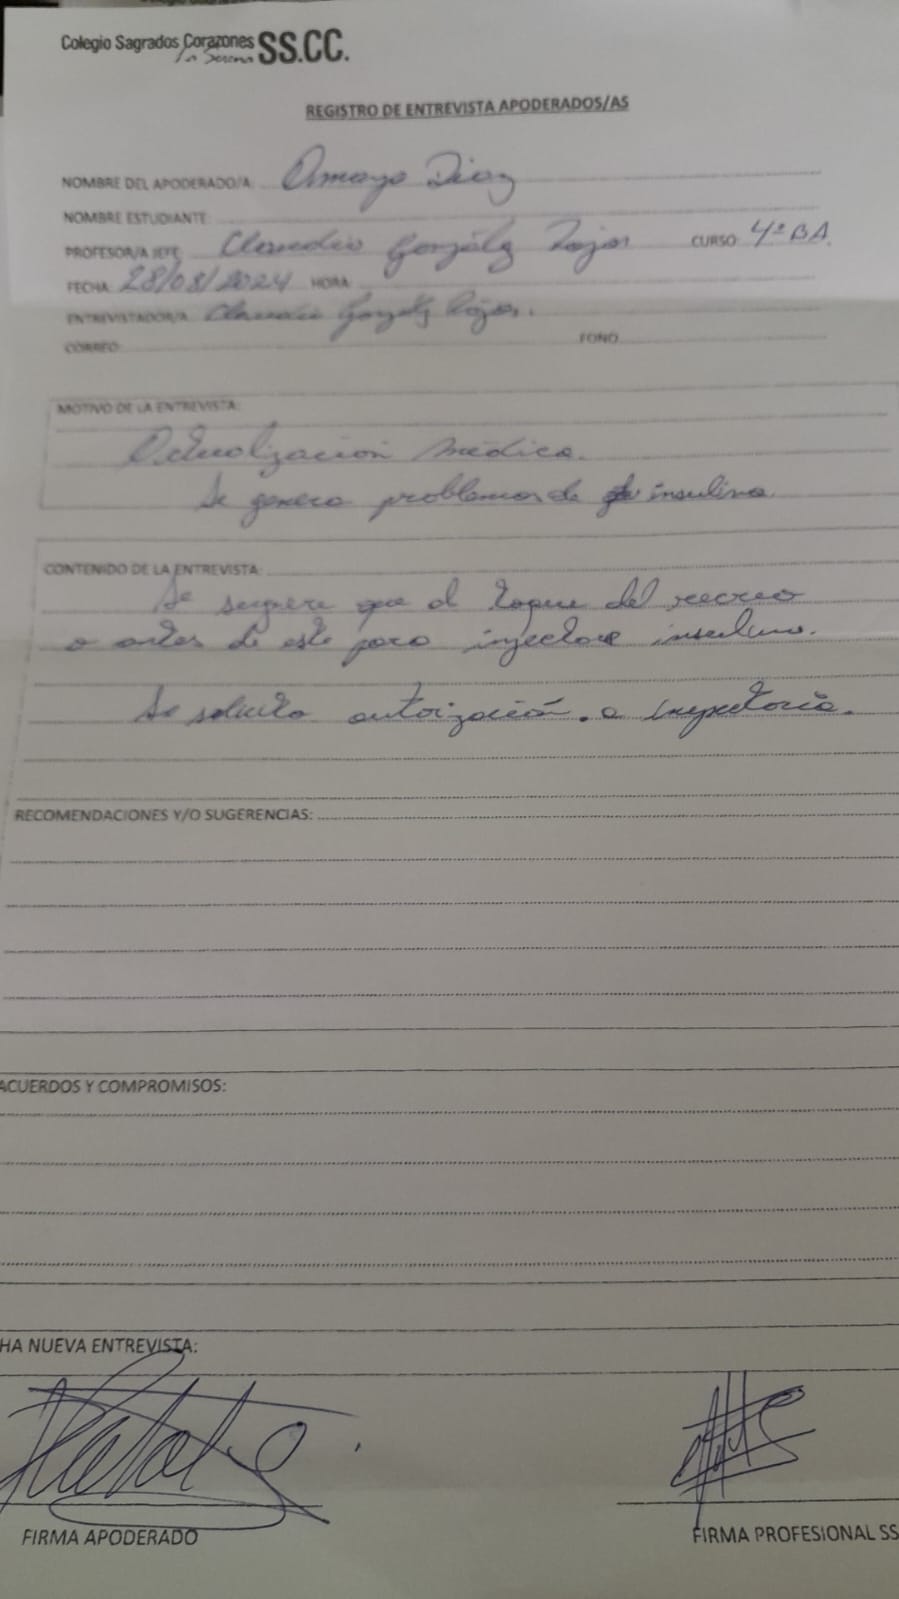 Colegio Sagrados Corazones SS.CC.
La Serena
REGISTRO DE ENTREVISTA APODERADOS/AS
NOMBRE DEL APODERADO/A: Amaya Diaz
NOMBRE ESTUDIANTE:
PROFESOR/A JEFE: Claudio González Rojas CURSO: 4º BA
FECHA: 28/08/2024 HORA:
ENTREVISTADOR/A: Claudio González Rojas.
CORREO: FONO
MOTIVO DE LA ENTREVISTA:
Actualización médica.
Se genera problemas de insulina
CONTENIDO DE LA ENTREVISTA:
Se sugiere que al toque del recreo
o antes de este para injectarse insulina.
Se solicita autorización a Inspectoría.
RECOMENDACIONES Y/O SUGERENCIAS:
ACUERDOS Y COMPROMISOS:
HA NUEVA ENTREVISTA:
FIRMA APODERADO FIRMA PROFESIONAL SS